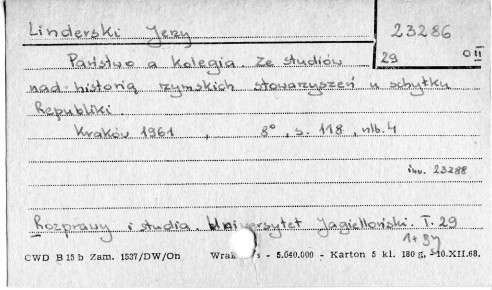 Linderski Jerzy
23286
29 O II
Państwo a kolegia. Ze studiów
nad historią rzymskich stowarzyszeń u schyłku
Republiki.
Kraków 1961, 8°, s. 118, nlb. 4
inw. 23288
Rozprawy i studia. Uniwersytet Jagielloński. T. 29
CWD B 15 b Zam. 1537/DW/On - 5.040.000 - Karton 5 kl. 180 g, 10.XII.68.